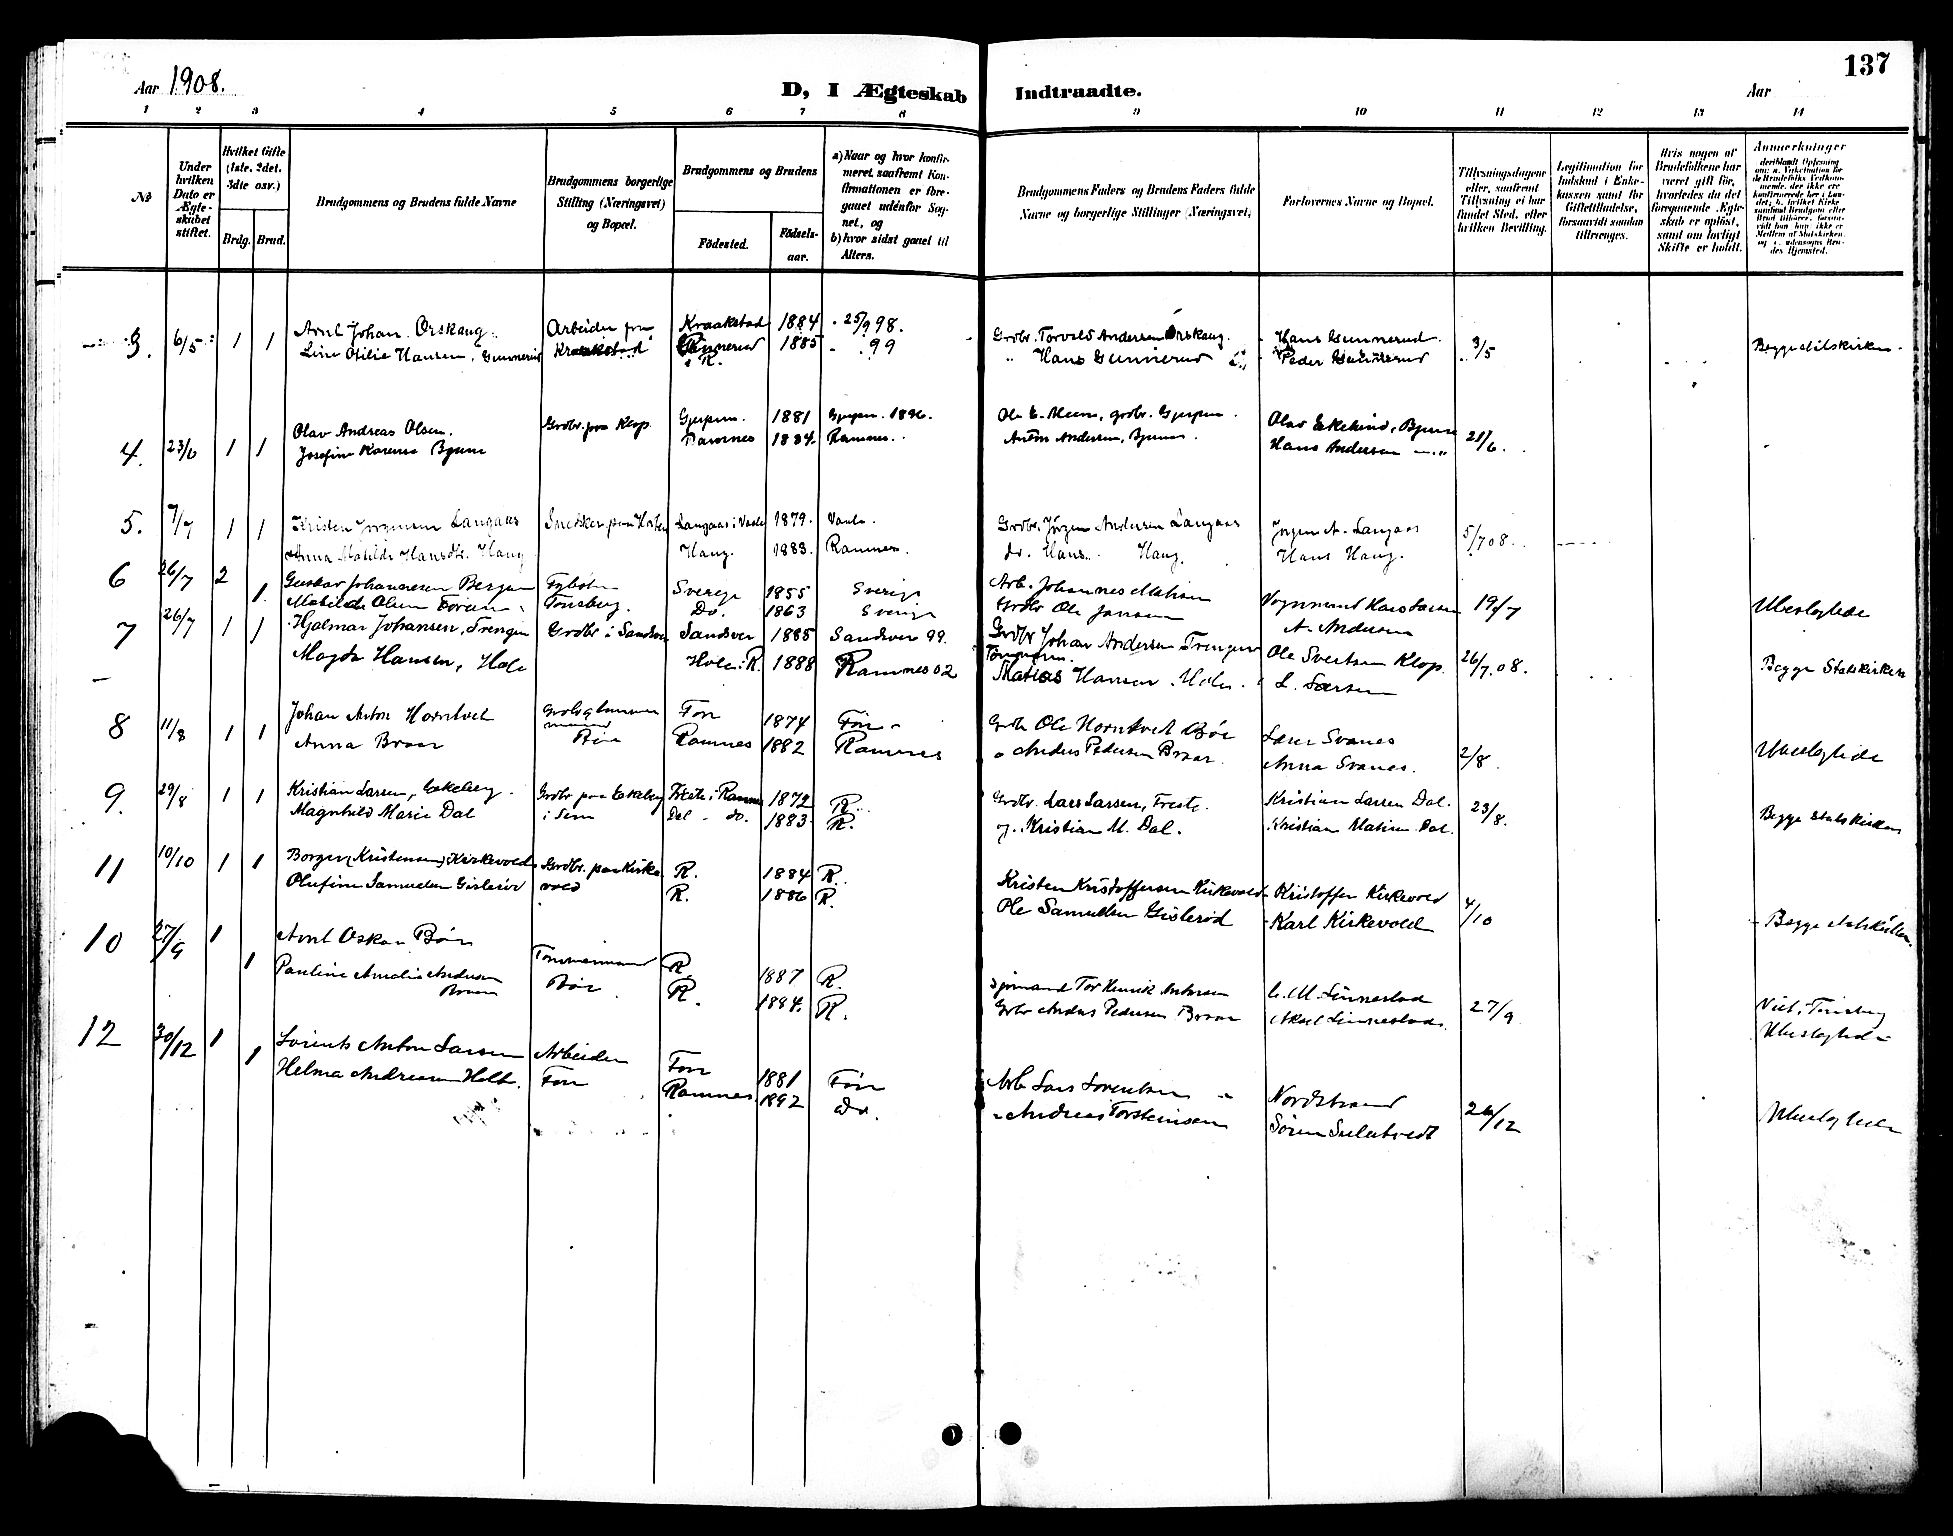 137
Aar 1908.
D, I Ægteskab Indtraadte.
Aar
1 2 3 4 5 6 7 8 9 10 11 12 13 14
No
Under hvilken Dato er Ægteskabet stiftet.
Hvilket Gifte (1ste, 2det, 3dte osv.)
Brdg. Brud.
Brudgommens og Brudens fulde Navne
Brudgommens borgerlige Stilling (Næringsvei) og Bopæl.
Brudgommens og Brudens
Fødested. Fødselsaar.
a) Naar og hvor konfirmeret, saafremt Konfirmationen er foregaaet udenfor Sognet, og
b) hvor sidst gaaet til Alters.
Brudgommens Faders og Brudens Faders fulde Navne og borgerlige Stillinger (Næringsvei)
Forlovernes Navne og Bopæl.
Tillysningsdagene eller, saafremt Tillysning ei har fundet Sted, efter hvilken Bevilling.
Legitimation for Indskud i Enkekassen samt for Giftetilladelse, forsaavidt saadan tiltrænges.
Hvis nogen af Brudefolkene har været gift før, hvorledes da det foregaaende Ægteskab er opløst, samt om lovligt Skifte er holdt.
Anmerkninger
3. 6/5 1 1 Arnt Johan Orskaug. Arbeider fra Kraakstad 1884 25/9 98. Grdbr. Torvald Andersen Orskaug. Hans Gunnerud 3/5
Line Otilie Hansen, Gunnerud Kraakstad Gunnerud R. 1885 99 " Hans Gunnerud Peder Gunnerud
Begge statskirken.
4. 23/6 1 1 Olav Andreas Olsen. Grdbr. paa Klop. Gjerpen. 1881 Gjerpen. 1896. Grdbr. Gjerpen. 21/6.
Josefine Karense Bjune Ramnes 1884. Ramnes. Anton Andersen, Bjune. Hans Andersen
5. 7/7 1 1 Kristen Jørgensen Langaas Snedker paa Horten Langaas i Vaale 1879. Vaale. Grdbr. Jørgen Andersen Langaas Jørgen A. Langaas 5/7 08.
Anna Matilde Hansdtr. Haug Haug. 1883. Ramnes. do. Hans Haug. Hans Haug.
6 26/7 2 1. Gustav Johannesen Bergan Sverige 1855 Sverige Arb. Johannes Matisen 19/7
Matilde Olsen Tønsberg. Do. 1863 Sverige Grdbr Ole Jansen A. Andersen
Ubeslegtede
7 26/7 1 1 Hjalmar Johansen, Trengen Grdbr i Sandsver Sandsver 1885 Sandsver 99. Grdbr Johan Andersen Trengen Ole Svertsen Klop. 26/7.08.
Magda Hansen, Hole Hole i R. 1888 Ramnes 02 Matias Hansen. Hole. L. Larsen
Begge Statskirken
8 11/8 1 1 Johan Anton Horntvet 1874 Grdb Ole Horntvet Bøe Lars Svanes 2/8.
Anna Braar Bøe Ramnes 1882 Ramnes " Anders Pedersen Braar. Anna Svanes.
Ubeslegtede
9. 29/8 1 1 Kristian Larsen, Ekeberg. Grdbr paa Ekeberg Freste i Ramnes 1872 R. Grdbr. Lars Larsen, Freste. Kristian Larsen Dal. 23/8.
Magnhild Marie Dal i Sem Dal - do. 1883. R. Kristian M. Dal. Kristian Matisen Dal.
Begge statskirken
11 10/10 1 1 Borger (Kristensen) Kirkevold Grdbr. paa Kirkevold R. 1884 R. Kristen Kristoffersen Kirkevold Kristoffer Kirkevold 4/10
Olufine Samuelsen Gislerød R. 1886 R. Ole Samuelsen Gislerød Karl Kirkevold
Begge statskirken.
10 27/9 1 1 Arnt Oskar Bøe Tømmermand R. 1887 R. Sjømand Tor Henrik Antonsen C. M. Linnestad 27/9
Pauline Amalie Andersen Braar Bøe R. 1884. R. Grdbr Anders Pedersen Braar Aksel Linnestad.
Viet i Tønsberg
Ubeslegtede
12 30/12 1 1 Lorents Anton Larsen Arbeider Fon 1881 Føn Arb Lars Lorentsen Nordstrand 26/12
Helma Andreasen Holt. Fon Ramnes 1892 do. " Andreas Torsteinsen Søren Sulutvedt
Ubeslegtede